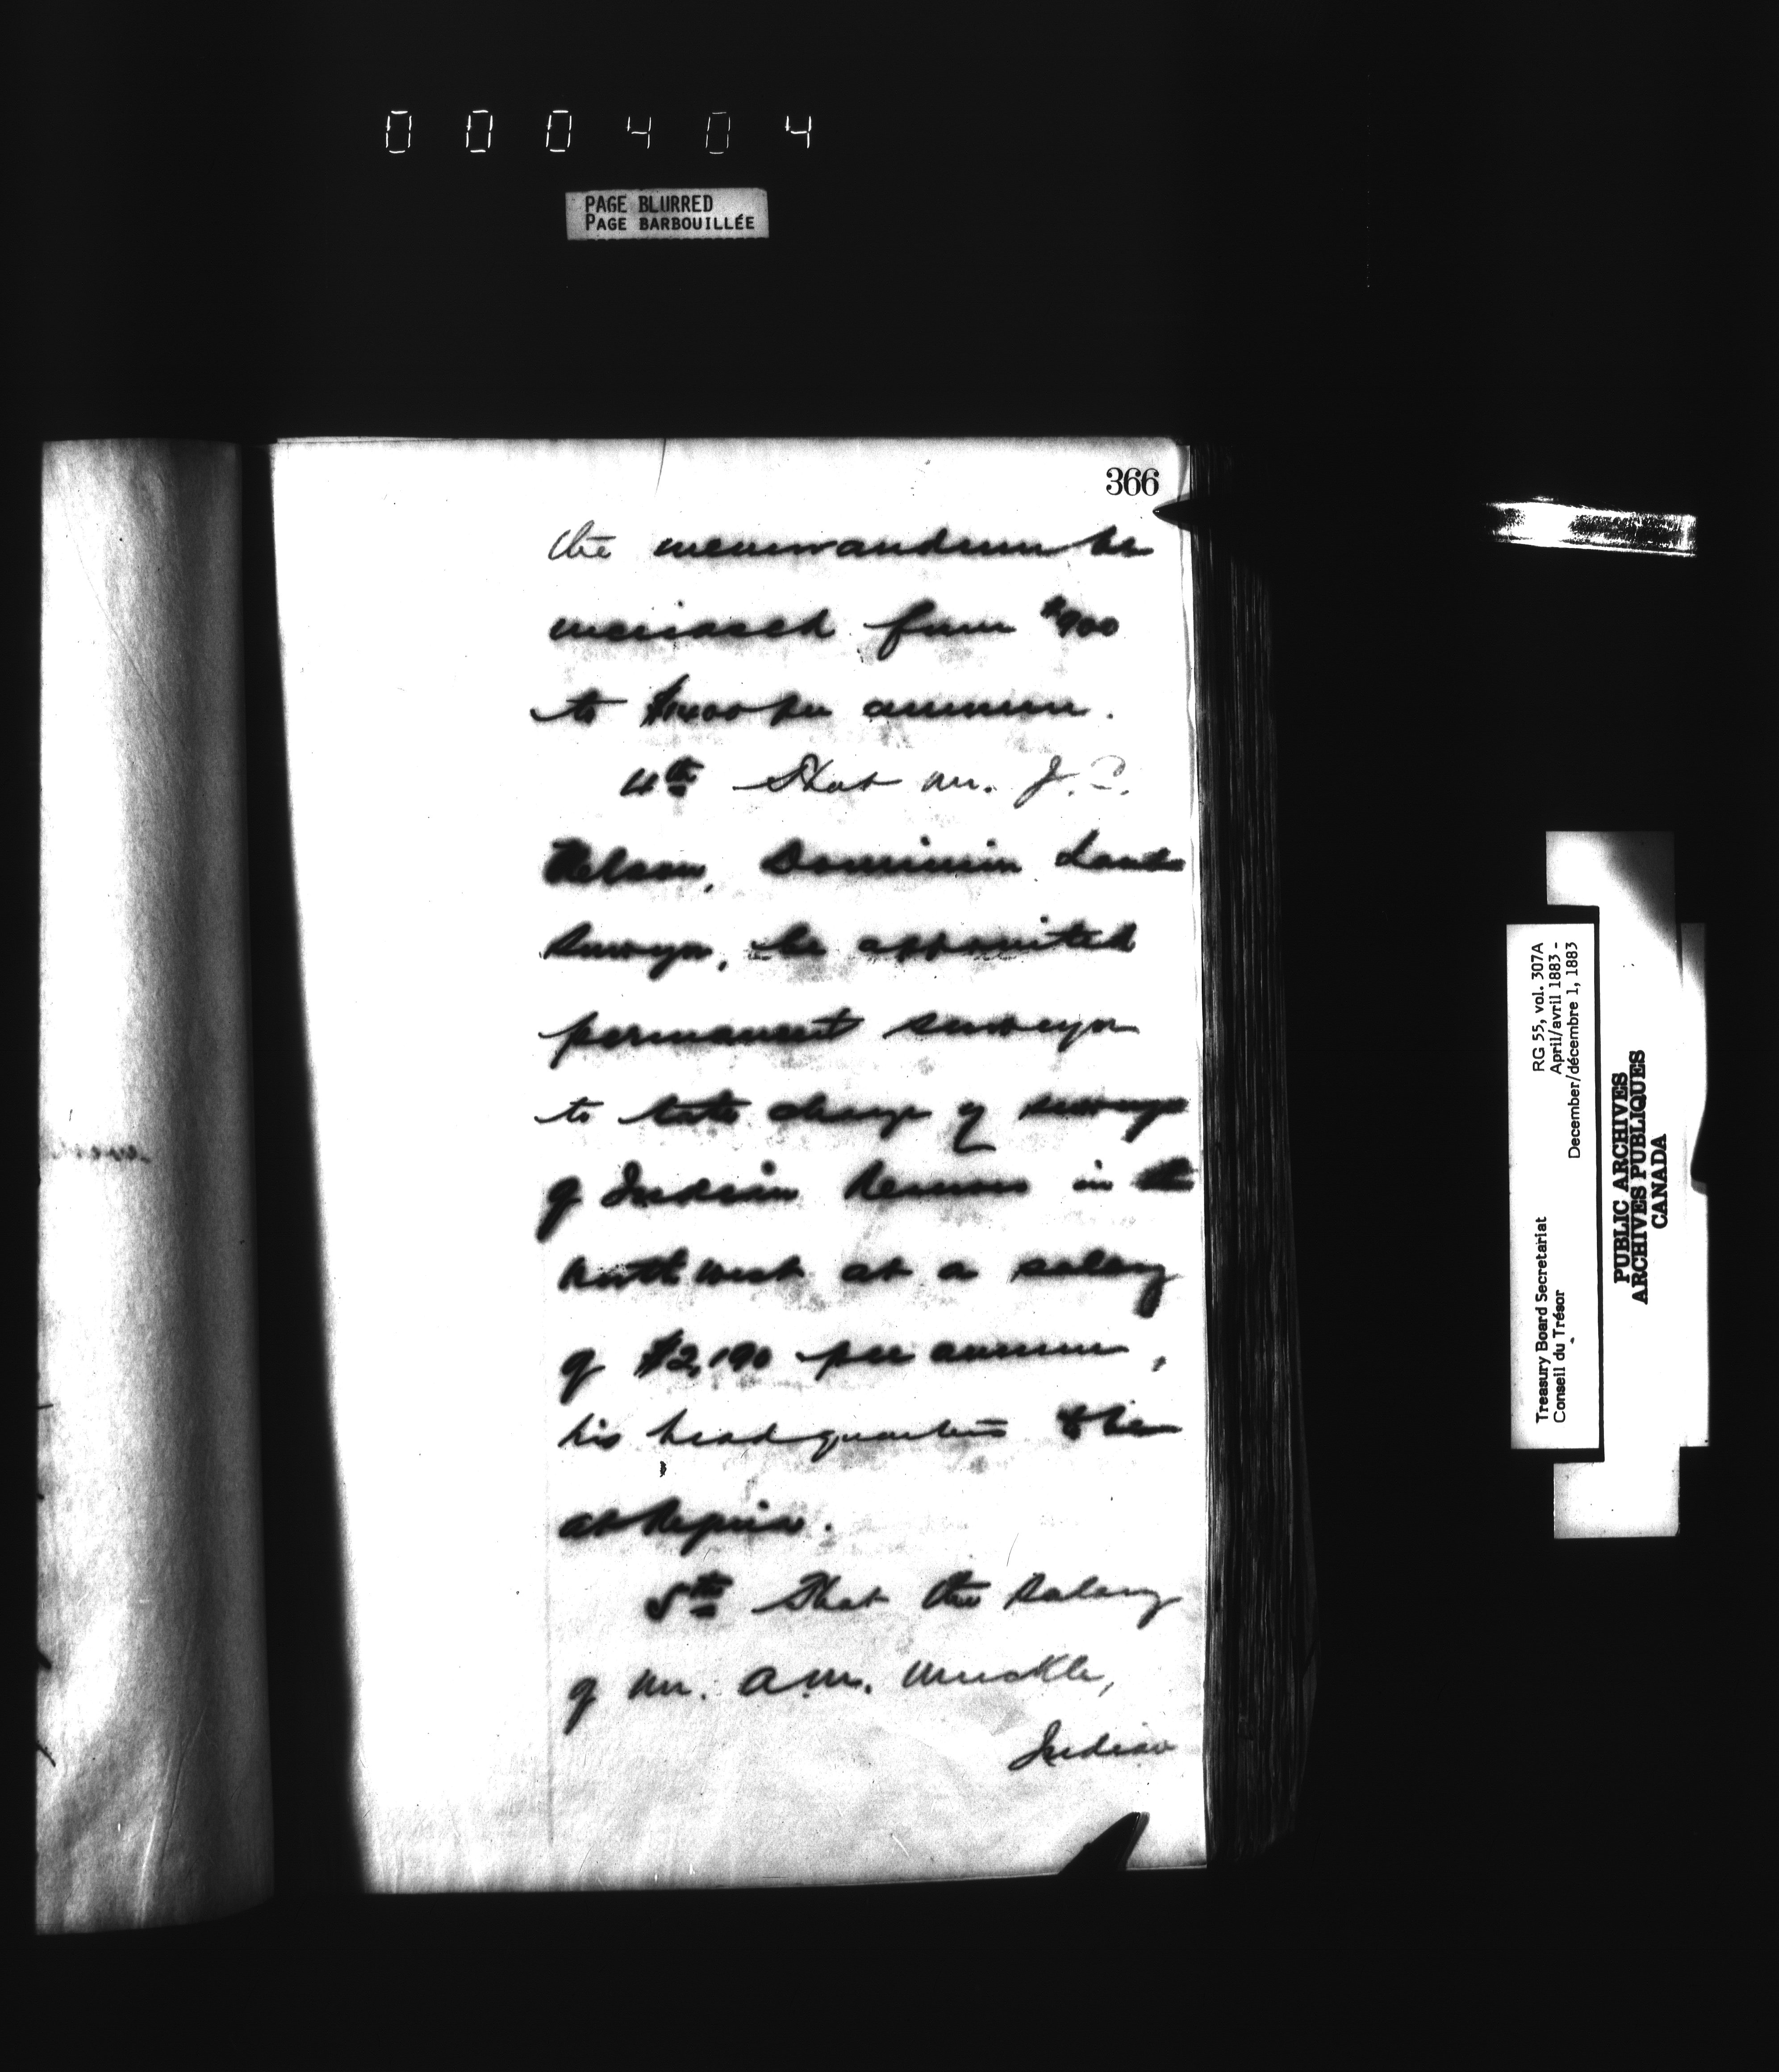 000404
PAGE BLURRED
PAGE BARBOUILLÉE
366
the memorandum be
increased from $900
to $1400 per annum.
4th That Mr. J. C.
Nelson, Dominion Lands
Surveyor, be appointed
permanent surveyor
to take charge of surveys
of Indian Reserves in the
North West at a salary
of $2,190 per annum,
his headquarters to be
at Regina.
5th That the salary
of Mr. A. M. Muckle,
Indian
RG 55, vol. 307A
April/avril 1883 -
December/décembre 1, 1883
Treasury Board Secretariat
Conseil du Trésor
PUBLIC ARCHIVES
ARCHIVES PUBLIQUES
CANADA